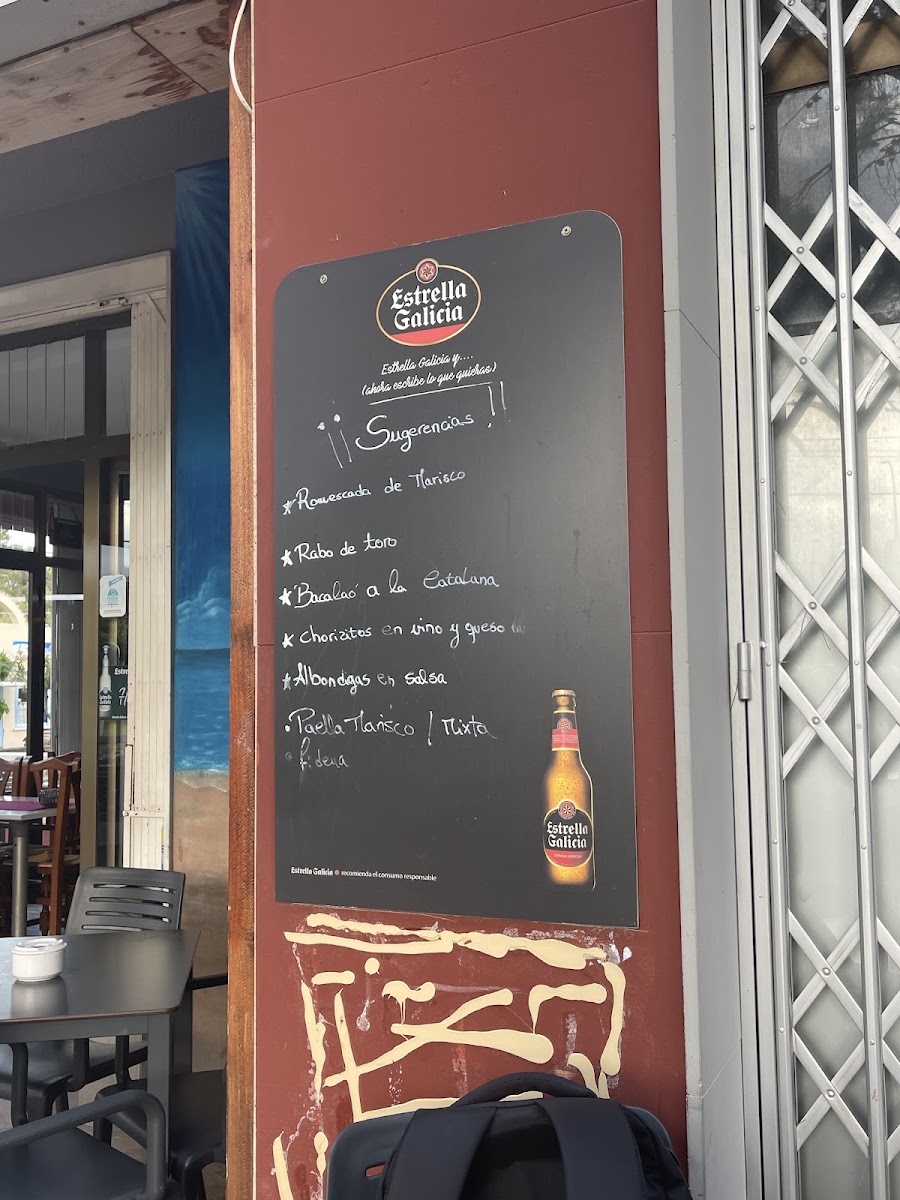 Estrella
Galicia
Estrella Galicia y....
(ahora escribe lo que quieras)
¡¡ Sugerencias !!
★ Romescada de Marisco
★ Rabo de toro
★ Bacalao a la Catalana
★ Chorizitos en vino y queso
★ Albondigas en salsa
• Paella Marisco / Mixta
• fideua
Estrella
Galicia
Estrella Galicia recomienda el consumo responsable